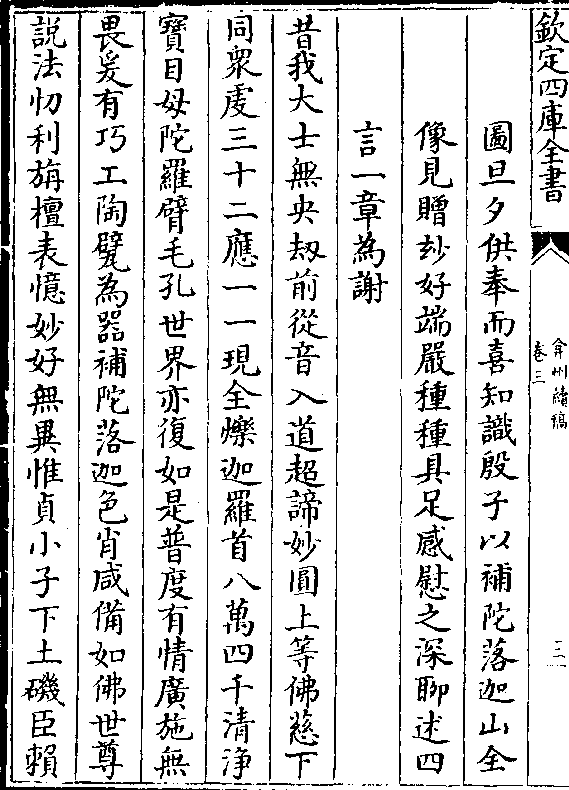 欽定四庫全書
弇州續稿
卷三
三
圖旦夕供奉而喜知識殷子以補陀落迦山全
像見贈玅好端嚴種種具足感慰之深聊述四
言一章為謝
昔我大士無央刼前從音入道超諦妙圓上等佛慈下
同衆䖏三十二應一一現全爍迦羅首八萬四千清浄
寶目母陀羅臂毛孔世界亦復如是普度有情廣施無
畏爰有巧工陶甓為器補陀落迦色肖咸備如佛世尊
説法忉利旃檀表憶妙好無異惟貞小子下土磯臣賴